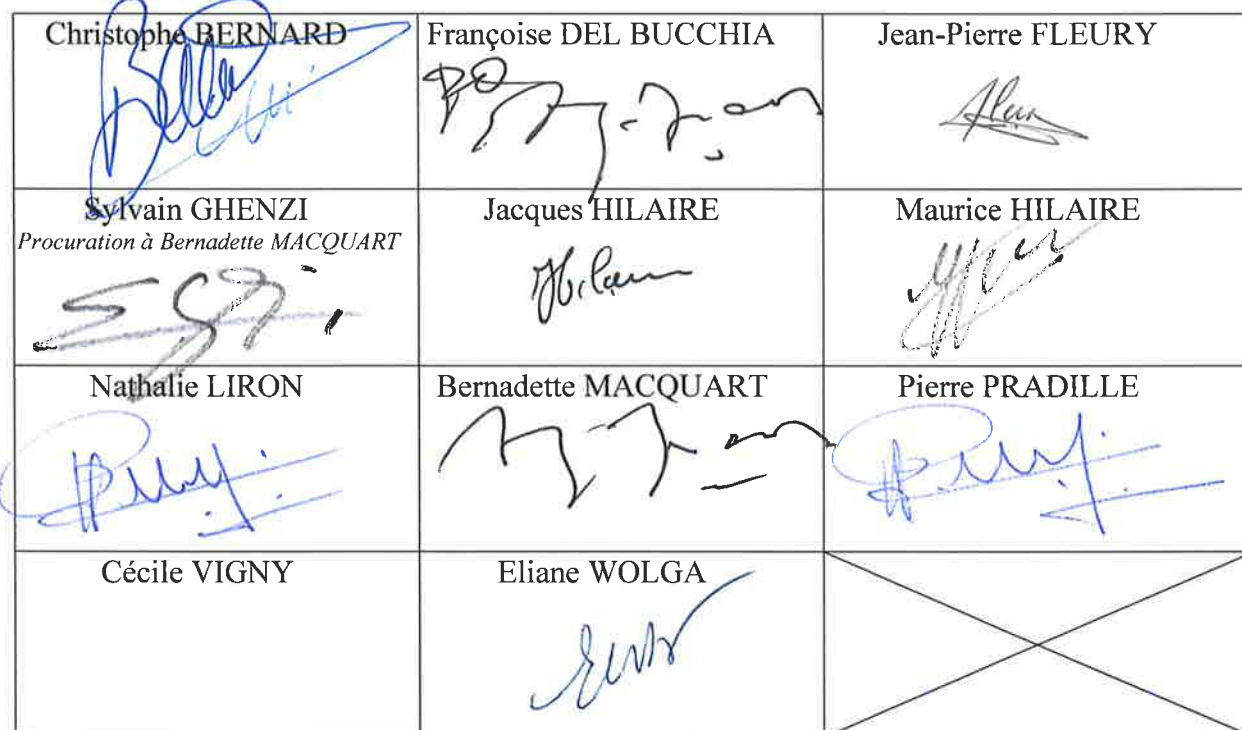 Christophe BERNARD
Françoise DEL BUCCHIA
Jean-Pierre FLEURY
Sylvain GHENZI
Procuration à Bernadette MACQUART
Jacques HILAIRE
Maurice HILAIRE
Nathalie LIRON
Bernadette MACQUART
Pierre PRADILLE
Cécile VIGNY
Eliane WOLGA